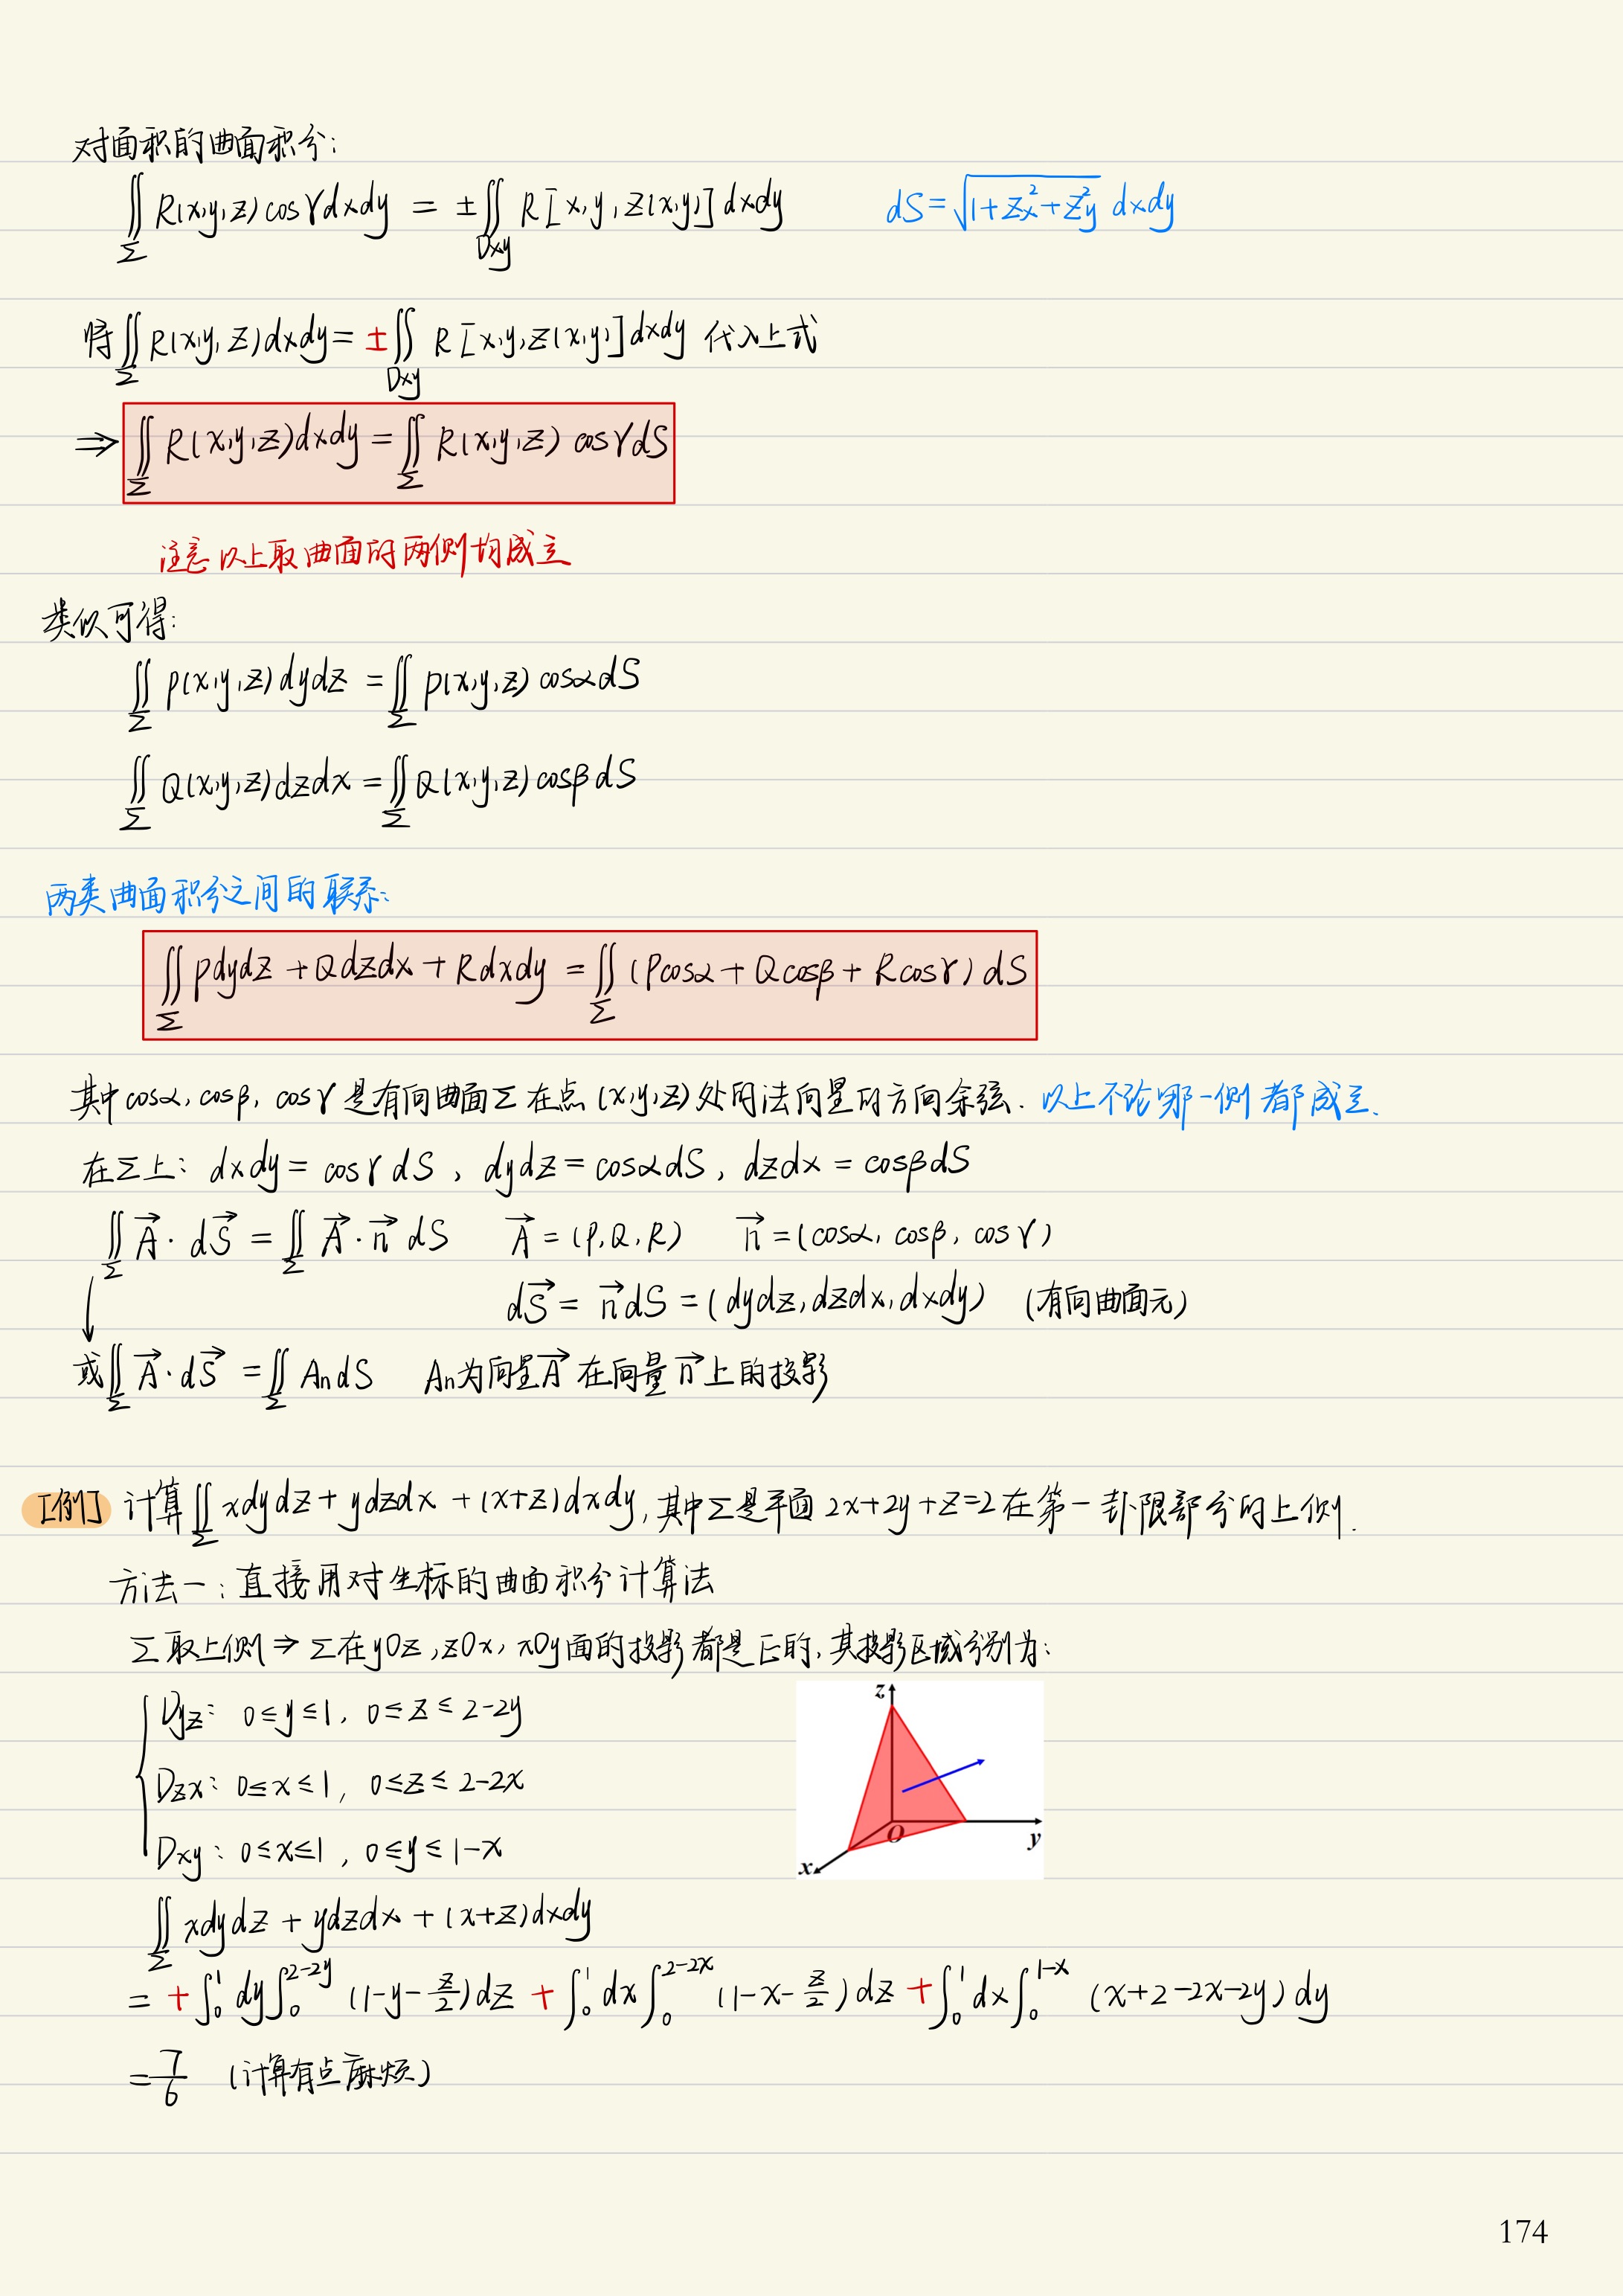 对面积的曲面积分:
∬_Σ R(x,y,z) cosγ dxdy = ±∬_{Dxy} R[x,y,z(x,y)] dxdy  dS = √(1+Zx²+Zy²) dxdy
将 ∬_Σ R(x,y,z) dxdy = ±∬_{Dxy} R[x,y,z(x,y)] dxdy 代入上式
⇒ ∬_Σ R(x,y,z) dxdy = ∬_Σ R(x,y,z) cosγ dS
注意以上取曲面的两侧均成立
类似可得:
∬_Σ P(x,y,z) dydz = ∬_Σ P(x,y,z) cosα dS
∬_Σ Q(x,y,z) dzdx = ∬_Σ Q(x,y,z) cosβ dS
两类曲面积分之间的联系:
∬_Σ Pdydz + Qdzdx + Rdxdy = ∬_Σ (Pcosα + Qcosβ + Rcosγ) dS
其中 cosα, cosβ, cosγ 是有向曲面Σ在点(x,y,z)处的法向量的方向余弦. 以上不论哪一侧都成立.
在Σ上: dxdy = cosγ dS, dydz = cosα dS, dzdx = cosβ dS
∬_Σ A⃗·dS⃗ = ∬_Σ A⃗·n⃗ dS  A⃗ = (P,Q,R)  n⃗ = (cosα, cosβ, cosγ)
↓ dS⃗ = n⃗ dS = (dydz, dzdx, dxdy) (有向曲面元)
或 ∬_Σ A⃗·dS⃗ = ∬_Σ An dS  An为向量A⃗在向量n⃗上的投影
[例] 计算 ∬_Σ xdydz + ydzdx + (x+z)dxdy, 其中Σ是平面 2x+2y+z=2 在第一卦限部分的上侧.
方法一: 直接用对坐标的曲面积分计算法
Σ取上侧 ⇒ Σ在yOz, zOx, xOy面的投影都是正的, 其投影区域分别为:
Dyz: 0≤y≤1, 0≤z≤2-2y
Dzx: 0≤x≤1, 0≤z≤2-2x
Dxy: 0≤x≤1, 0≤y≤1-x
z
O
y
x
∬_Σ xdydz + ydzdx + (x+z)dxdy
= +∫₀¹ dy ∫₀^{2-2y} (1-y-z/2) dz + ∫₀¹ dx ∫₀^{2-2x} (1-x-z/2) dz + ∫₀¹ dx ∫₀^{1-x} (x+2-2x-2y) dy
= 7/6 (计算有点麻烦)
174